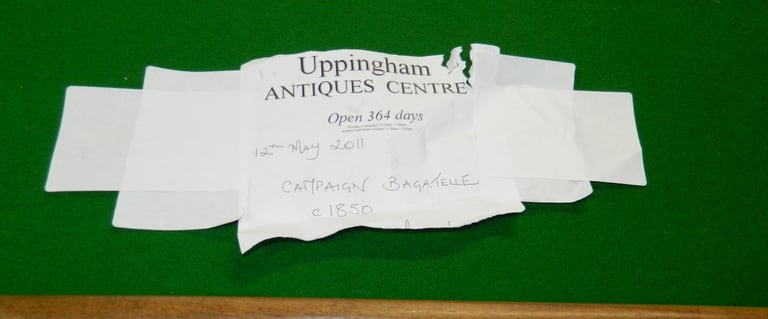 Uppingham
ANTIQUES CENTRE
Open 364 days
12th May 2011
CAMPAIGN BAGATELLE
c1850